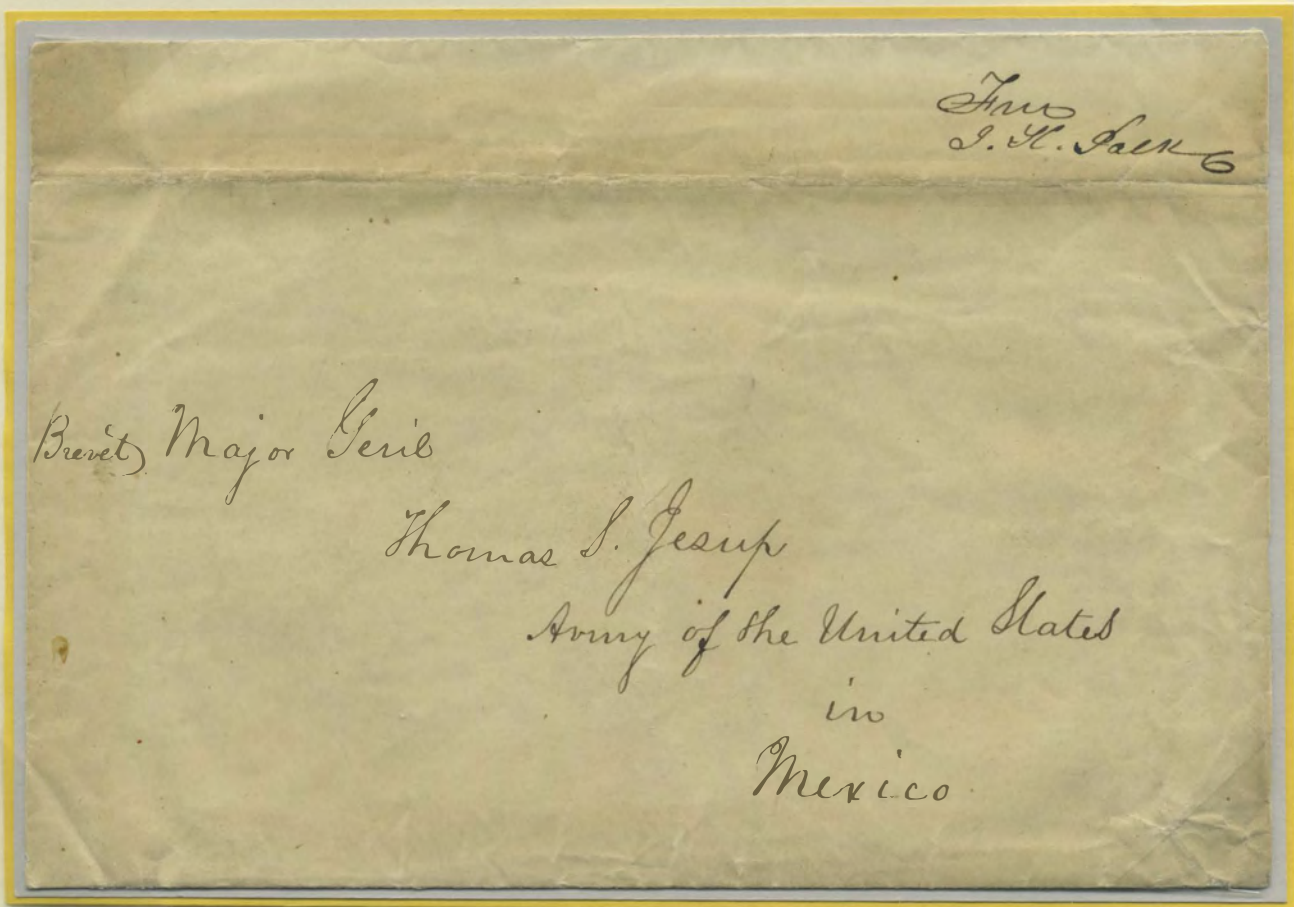 Free
J. K. Polk
Brevet Major Gen'l
Thomas S. Jesup
Army of the United States
in
Mexico